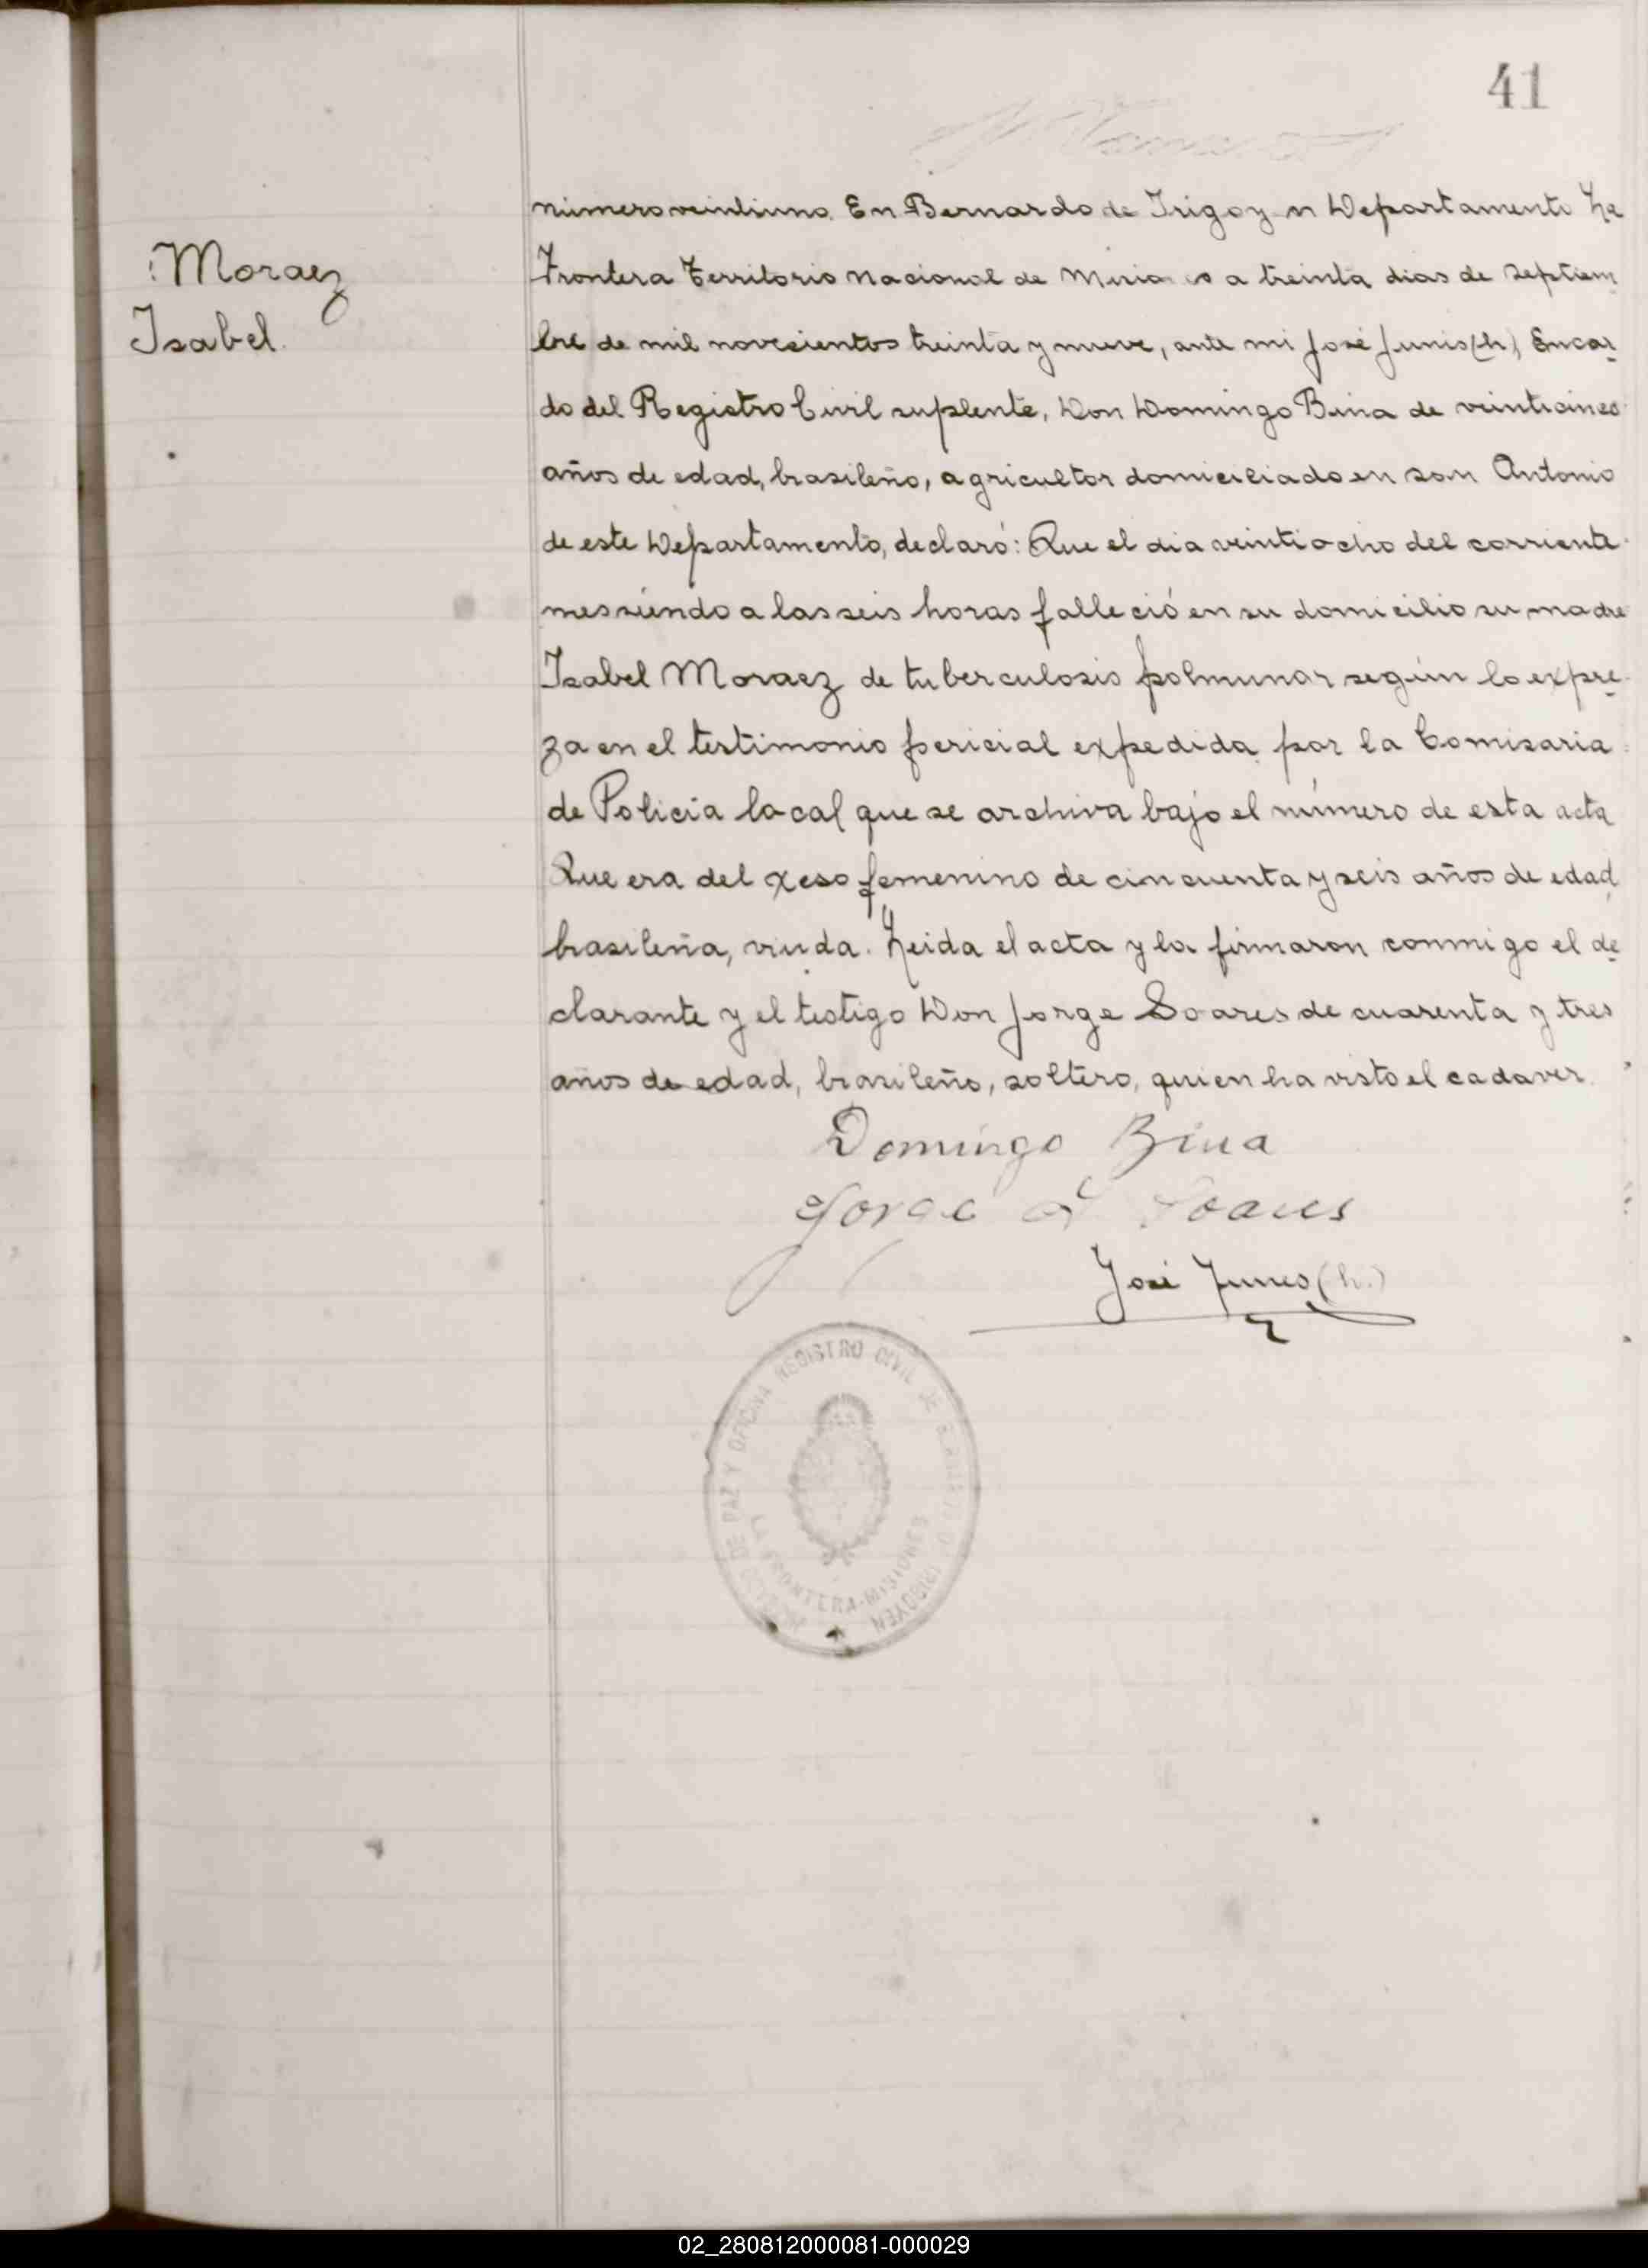 41
Moraez
Isabel.
número veintiuno. En Bernardo de Irigoyen Departamento La
Frontera Territorio Nacional de Misiones a treinta dias de septiem
bre de mil novecientos treinta y nueve, ante mi José Junes (h), Encar
do del Registro Civil suplente, Don Domingo Bina de veinticinco
años de edad, brasileño, agricultor domiciliado en san Antonio
de este Departamento, declaró: Que el dia veintiocho del corriente
mes siendo a las seis horas falleció en su domicilio su madre
Isabel Moraez de tuberculosis polmunar según lo expre
za en el testimonio pericial expedida por la Comisaria
de Policia local que se archiva bajo el número de esta acta
Que era del xeso femenino de cincuenta y seis años de edad,
brasileña, viuda. Leida el acta y la firmaron conmigo el de
clarante y el testigo Don Jorge Soares de cuarenta y tres
años de edad, brasileño, soltero, quien ha visto el cadaver.
Domingo Bina
Jorge Soares
José Junes (h.)
DE PAZ Y OFICINA REGISTRO CIVIL DE IRIGOYEN
LA FRONTERA-MISIONES
02_280812000081-000029